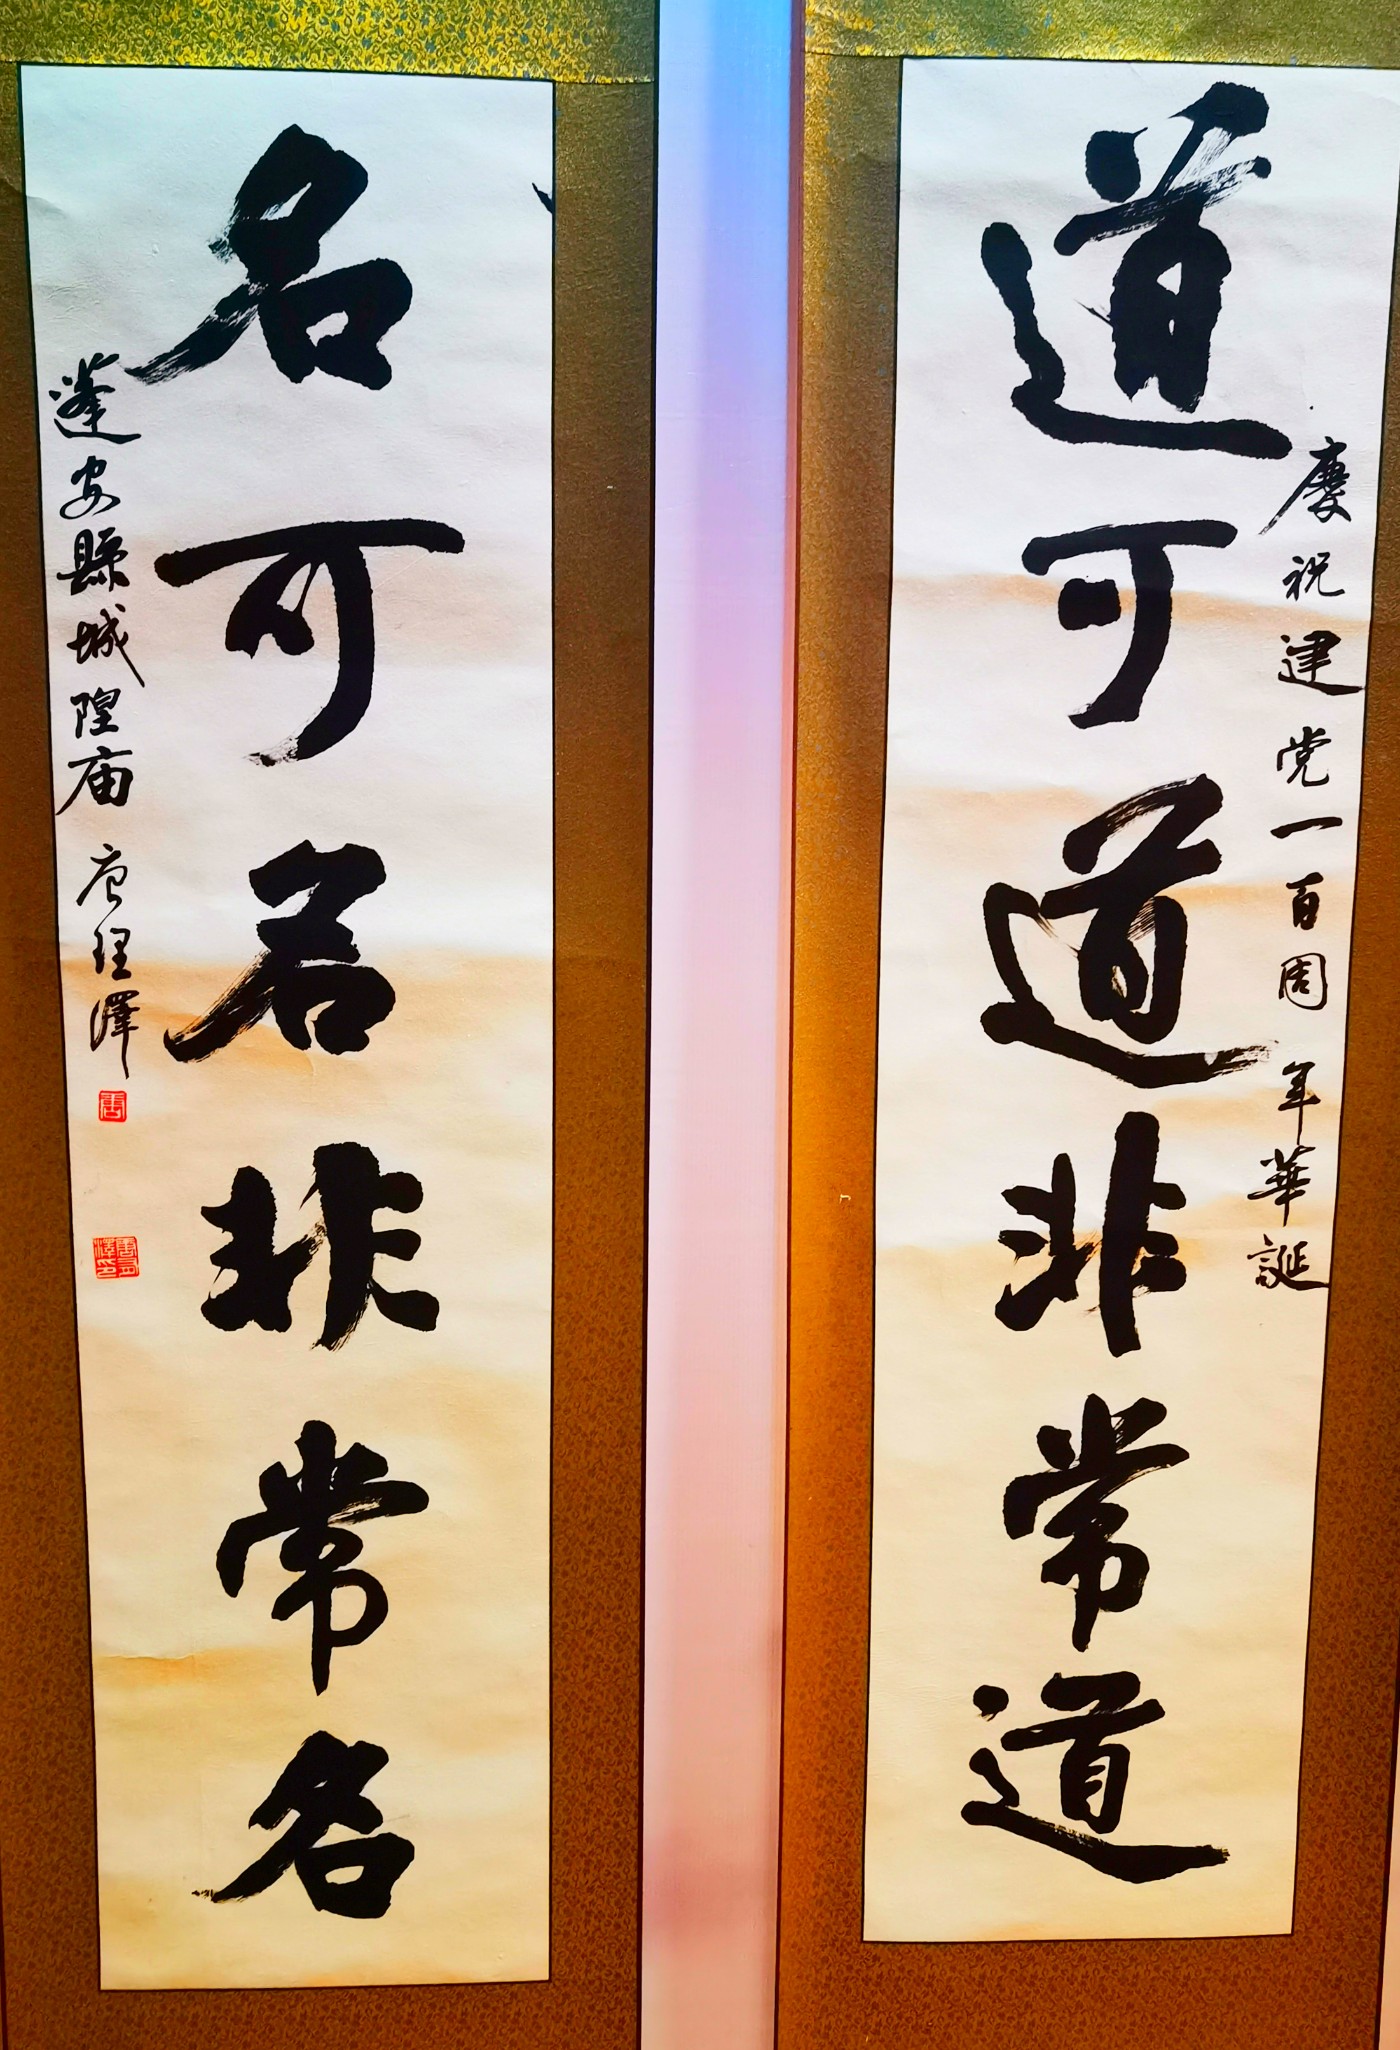 慶祝建党一百周年華誕
道可道非常道
名可名非常名
蓬安縣城隍庙 唐理澤
唐